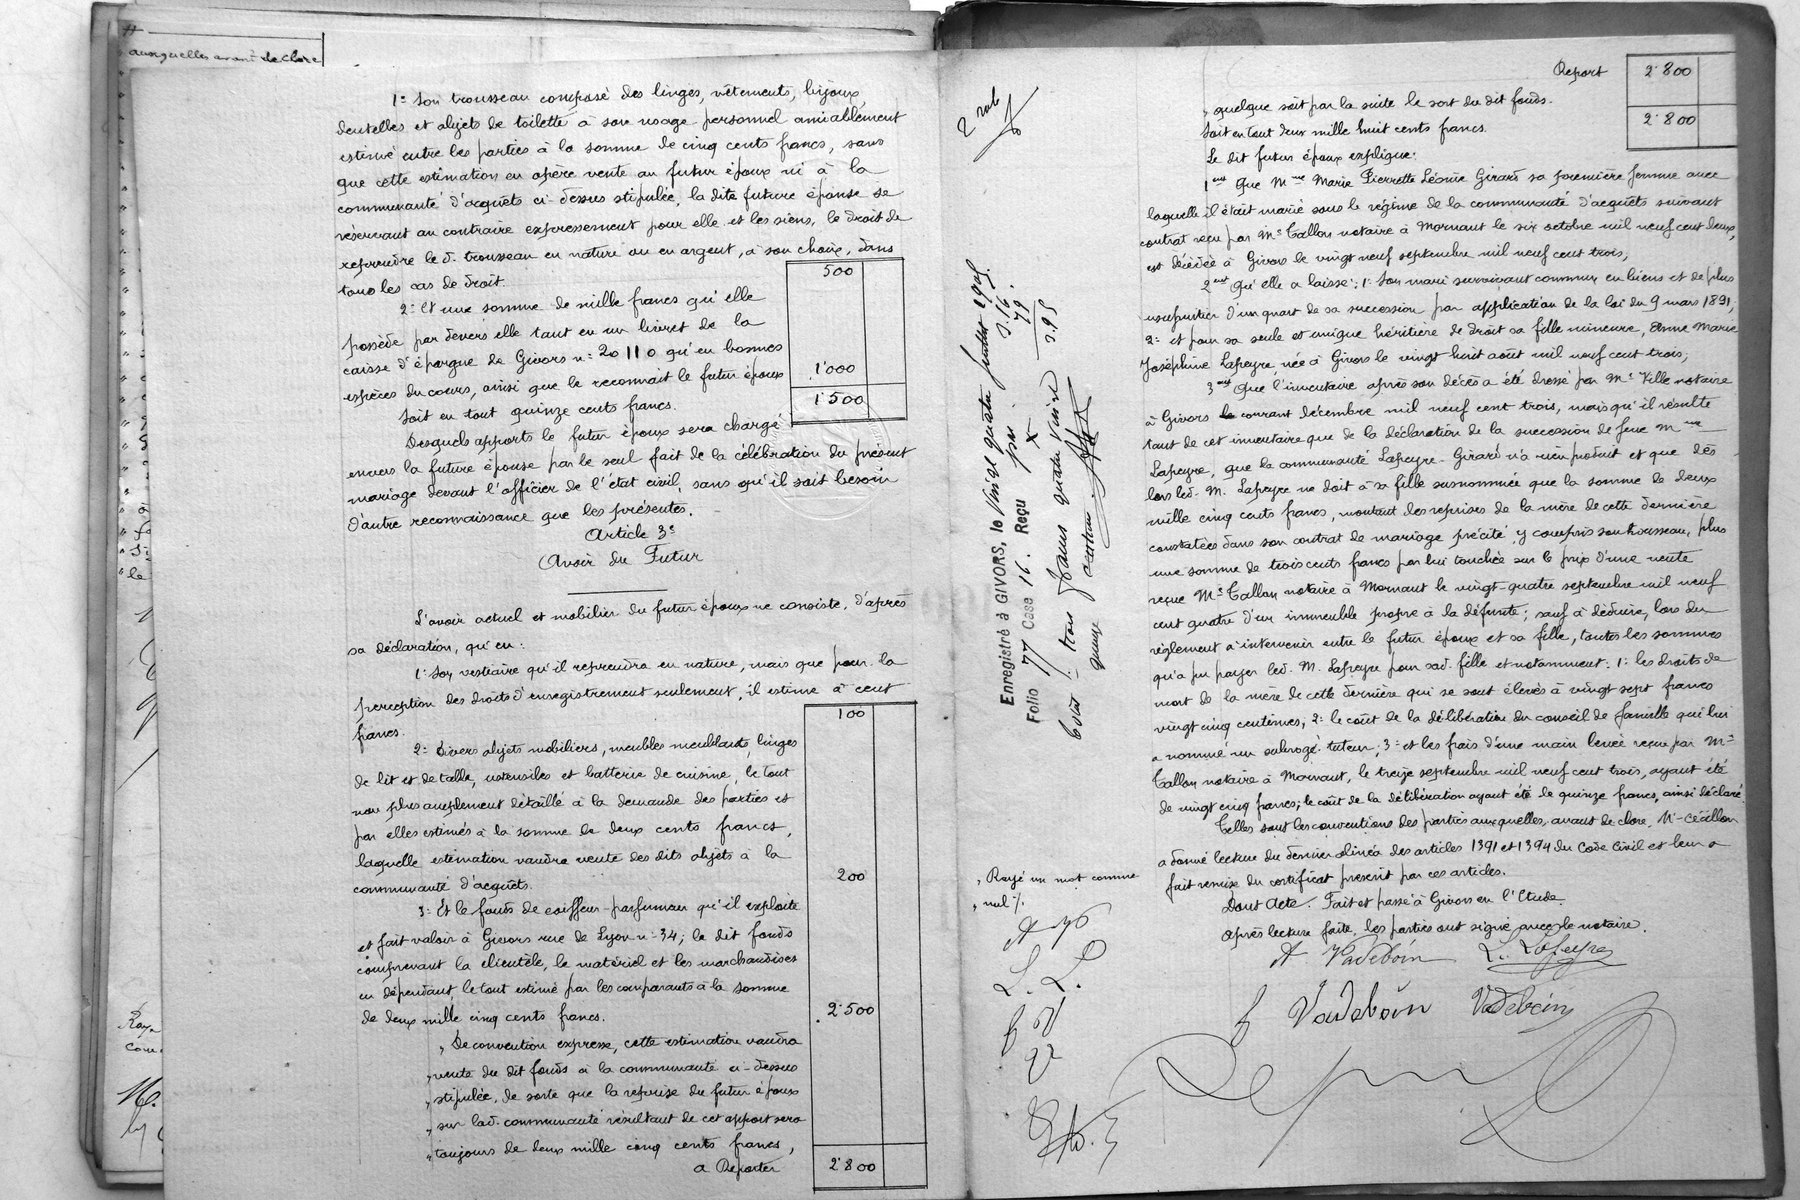 auxquelles avant de clore
1º Son trousseau composé des linges, vêtements, bijoux,
dentelles et objets de toilette à son usage personnel amiablement
estimé entre les parties à la somme de cinq cents francs, sans
que cette estimation en opère vente au futur époux ni à la
communauté d'acquêts ci-dessus stipulée, la dite future épouse se
réservant au contraire expressement pour elle et les siens, le droit de
reprendre le d. trousseau en nature ou en argent, à son choix, dans
tous les cas de droit.
500
2º Et une somme de mille francs qu'elle
possède par devers elle tant en un livret de la
caisse d'épargne de Givors nº 20110 qu'en bonnes
espèces du cours, ainsi que le reconnait le futur époux
1'000
Soit en tout quinze cents francs.
1'500
Desquels apports le futur époux sera chargé
envers la future épouse par le seul fait de la célébration du présent
mariage devant l'officier de l'état civil, sans qu'il soit besoin
d'autre reconnaissance que les présentes.
Article 3e
Avoir du Futur
L'avoir actuel et mobilier du futur époux ne consiste, d'après
sa déclaration, qu'en:
1º Son vestiaire qu'il reprendra en nature, mais que pour la
perception des droits d'enregistrement seulement, il estime à cent
francs.
100
2º Divers objets mobiliers, meubles meublants, linges
de lit et de table, ustensiles et batterie de cuisine, le tout
non plus amplement détaillé à la demande des parties et
par elles estimés à la somme de deux cents francs,
laquelle estimation vaudra vente des dits objets à la
communauté d'acquêts.
200
3º Et le fonds de coiffeur-parfumeur qu'il exploite
et fait valoir à Givors rue de Lyon nº 34; le dit fonds
comprenant la clientèle, le matériel et les marchandises
en dépendant, le tout estimé par les comparants à la somme
de deux mille cinq cents francs.
2'500
" De convention expresse, cette estimation vaudra
" vente du dit fonds à la communauté ci-dessus
" stipulée, de sorte que la reprise du futur époux
" sur lad. communauté résultant de cet apport sera
" toujours de deux mille cinq cents francs,
a Reporter 2'800
Report 2'800
" quelque soit par la suite le sort du dit fonds.
Soit en tout deux mille huit cents francs.
2'800
Le dit futur époux explique:
1ent Que Mme Marie Pierrette Léonie Girard sa première femme avec
laquelle il était marié sous le régime de la communauté d'acquêts suivant
contrat reçu par Me Tallon notaire à Mornant le six octobre mil neuf cent deux,
est décédée à Givors le vingt neuf septembre mil neuf cent trois;
2ent Qu'elle a laissé: 1º Son mari survivant commun en biens et de plus
usufruitier d'un quart de sa succession par application de la loi du 9 mars 1891;
2º et pour sa seule et unique héritière de droit sa fille mineure, Anne Marie
Joséphine Lapeyre née à Givors le vingt huit août mil neuf cent trois;
3ent Que l'inventaire après son décès a été dressé par Me Ville notaire
à Givors le courant décembre mil neuf cent trois, mais qu'il résulte
tant de cet inventaire que de la déclaration de la succession de feue Mme
Lapeyre, que la communauté Lapeyre-Girard n'a rien produit et que dès
lors led. M. Lapeyre ne doit à sa fille susnommée que la somme de deux
mille cinq cents francs, montant des reprises de la mère de cette dernière
constatées dans son contrat de mariage précité y compris son trousseau, plus
une somme de trois cents francs par lui touchée sur le prix d'une vente
reçue Me Tallon notaire à Mornant le vingt-quatre septembre mil neuf
cent quatre d'un immeuble propre à la défunte; sauf à déduire, lors du
règlement à intervenir entre le futur époux et sa fille, toutes les sommes
qu'a pu payer led. M. Lapeyre pour sad. fille et notamment: 1º les droits de
mort de la mère de cette dernière qui se sont élevés à vingt sept francs
vingt cinq centimes; 2º le coût de la délibération du conseil de famille qui lui
a nommé un subrogé tuteur; 3º et les frais d'une main levée reçue par Me
Tallon notaire à Mornant, le treize septembre mil neuf cent trois, ayant été
de vingt cinq francs; le coût de la délibération ayant été de quinze francs, ainsi déclaré.
Telles sont les conventions des parties auxquelles, avant de clore, Me Cécillon
a donné lecture du dernier alinéa des articles 1391 et 1394 du Code Civil et leur a
fait remise du certificat prescrit par ces articles.
Dont Acte. Fait et passé à Givors en l'Etude.
Après lecture faite, les parties ont signé avec le notaire.
A Vadeboin L. Lapeyre
Vadeboin Vadeboin
2 rol
Enregistré à GIVORS, le vingt quatre juillet 1905.
Folio 77 Case 16. Reçu
3.16
79
3.95
trois francs quatre vingt
quinze centimes
" Rayé un mot comme
" nul %
L. L.